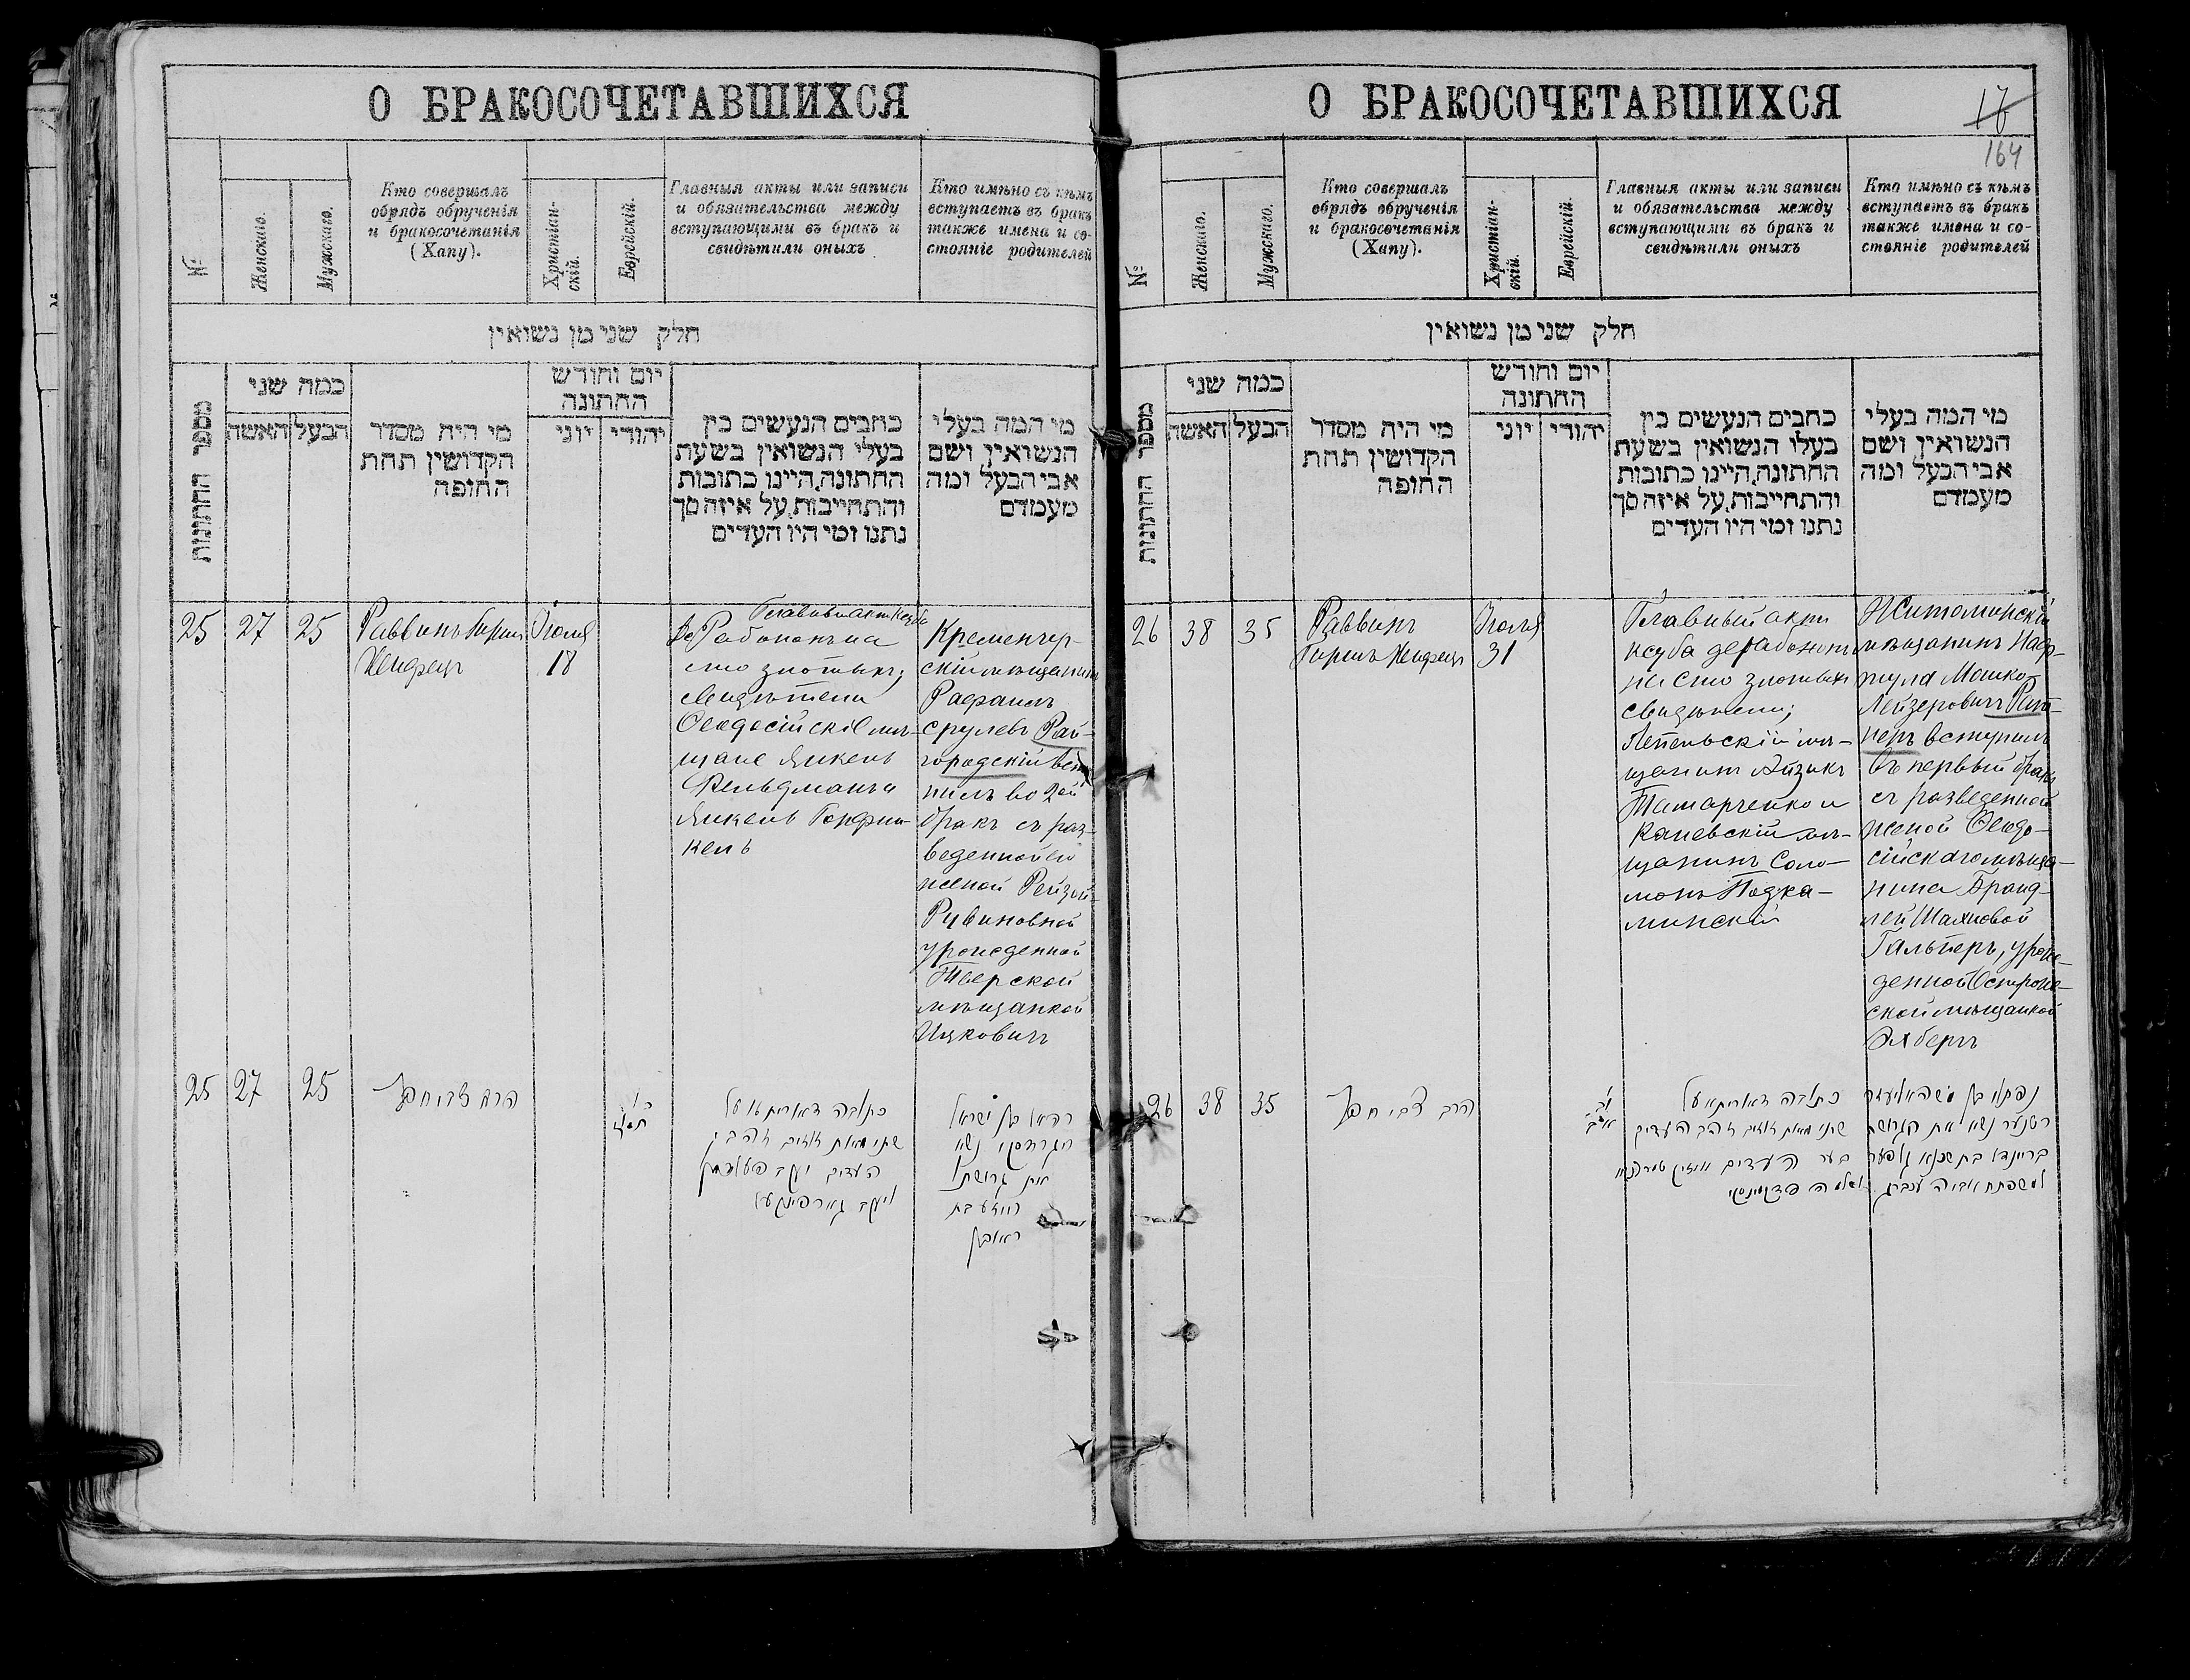 О БРАКОСОЧЕТАВШИХСЯ
№
Женскаго.
Мужскаго.
Кто совершалъ
обрядъ обрученія
и бракосочетанія
(Хапу).
Христіан-
скій.
Еврейскій.
Главныя акты или записи
и обязательства между
вступающими въ бракъ и
свидѣтили оныхъ
Кто имѣно съ кѣмъ
вступаетъ въ бракъ
также имена и со-
стояніе родителей
חלק שני מן נשואין
מספר החתונות
כמה שני
האשה
הבעל
מי היה מסדר
הקדושין תחת
החופה
יום וחודש
החתונה
יוני
יהודי
כתבים הנעשים בין
בעלי הנשואין בשעת
החתונה, היינו כתובות
והתחייבות, על איזה סך
נתנו ומי היו העדים
מי המה בעלי
הנשואין ושם
אבי הבעל ומה
מעמדם
25
27
25
Раввинъ Гирш
Хейфецъ
Іюля
18
Главный актъ Ксуба
де Рабононъ на
сто злотыхъ;
свидѣтели
Ѳеодосійскіе мѣ-
щане Янкель
Фельдманъ и
Янкель Гарфин-
кель
Кременчуг-
скій мѣщанинъ
Рафаилъ
Срулевъ Рай-
городскій всту-
пилъ во 2ой
бракъ съ раз-
веденной его
женой Рейзой
Рувиновной
урожденной
Тверской
мѣщанкой
Ицковичъ
25
27
25
הרב צבי חפץ
כ"ו
תמוז
כתובה דאוריתא על
שתי מאות זוזים זהב
העדים יעקב פעלדמאן
ויעקב גארפינקעל
רפאל בן ישראל
רייגרודסקי נשא
את גרושתו
רייזע בת
ראובן
О БРАКОСОЧЕТАВШИХСЯ
17
164
№
Женскаго.
Мужскаго.
Кто совершалъ
обрядъ обрученія
и бракосочетанія
(Хапу).
Христіан-
скій.
Еврейскій.
Главныя акты или записи
и обязательства между
вступающими въ бракъ и
свидѣтили оныхъ
Кто имѣно съ кѣмъ
вступаетъ въ бракъ
также имена и со-
стояніе родителей
חלק שני מן נשואין
מספר החתונות
כמה שני
האשה
הבעל
מי היה מסדר
הקדושין תחת
החופה
יום וחודש
החתונה
יוני
יהודי
כתבים הנעשים בין
בעלי הנשואין בשעת
החתונה, היינו כתובות
והתחייבות, על איזה סך
נתנו ומי היו העדים
מי המה בעלי
הנשואין ושם
אבי הבעל ומה
מעמדם
26
38
35
Раввинъ
Гиршъ Хейфецъ
Іюля
31
Главный актъ
ксуба дерабонинъ
на сто злотыхъ
свидѣтели;
Лепельскій мѣ-
щанинъ Айзикъ
Татарченко и
Каневскій мѣ-
щанинъ Соло-
монъ Подка-
минскій
Житомирскій
мѣщанинъ Наф-
тула Мошко-
Лейзеровичъ Рат-
неръ вступилъ
въ первый бракъ
съ разведенной
женой Ѳеодо-
сійскаго мѣща-
нина Бранд-
лей Шахновой
Гальперъ, урож-
денной Острож-
ской мѣщанкой
26
38
35
הרב צבי חפץ
אב
כתובה דאוריתא על
שתי מאות זוזים זהב העדים
נפתלי בן משה אליעזר
רטנער נשא את הגרושה
בריינדל בת שכנא גלפער